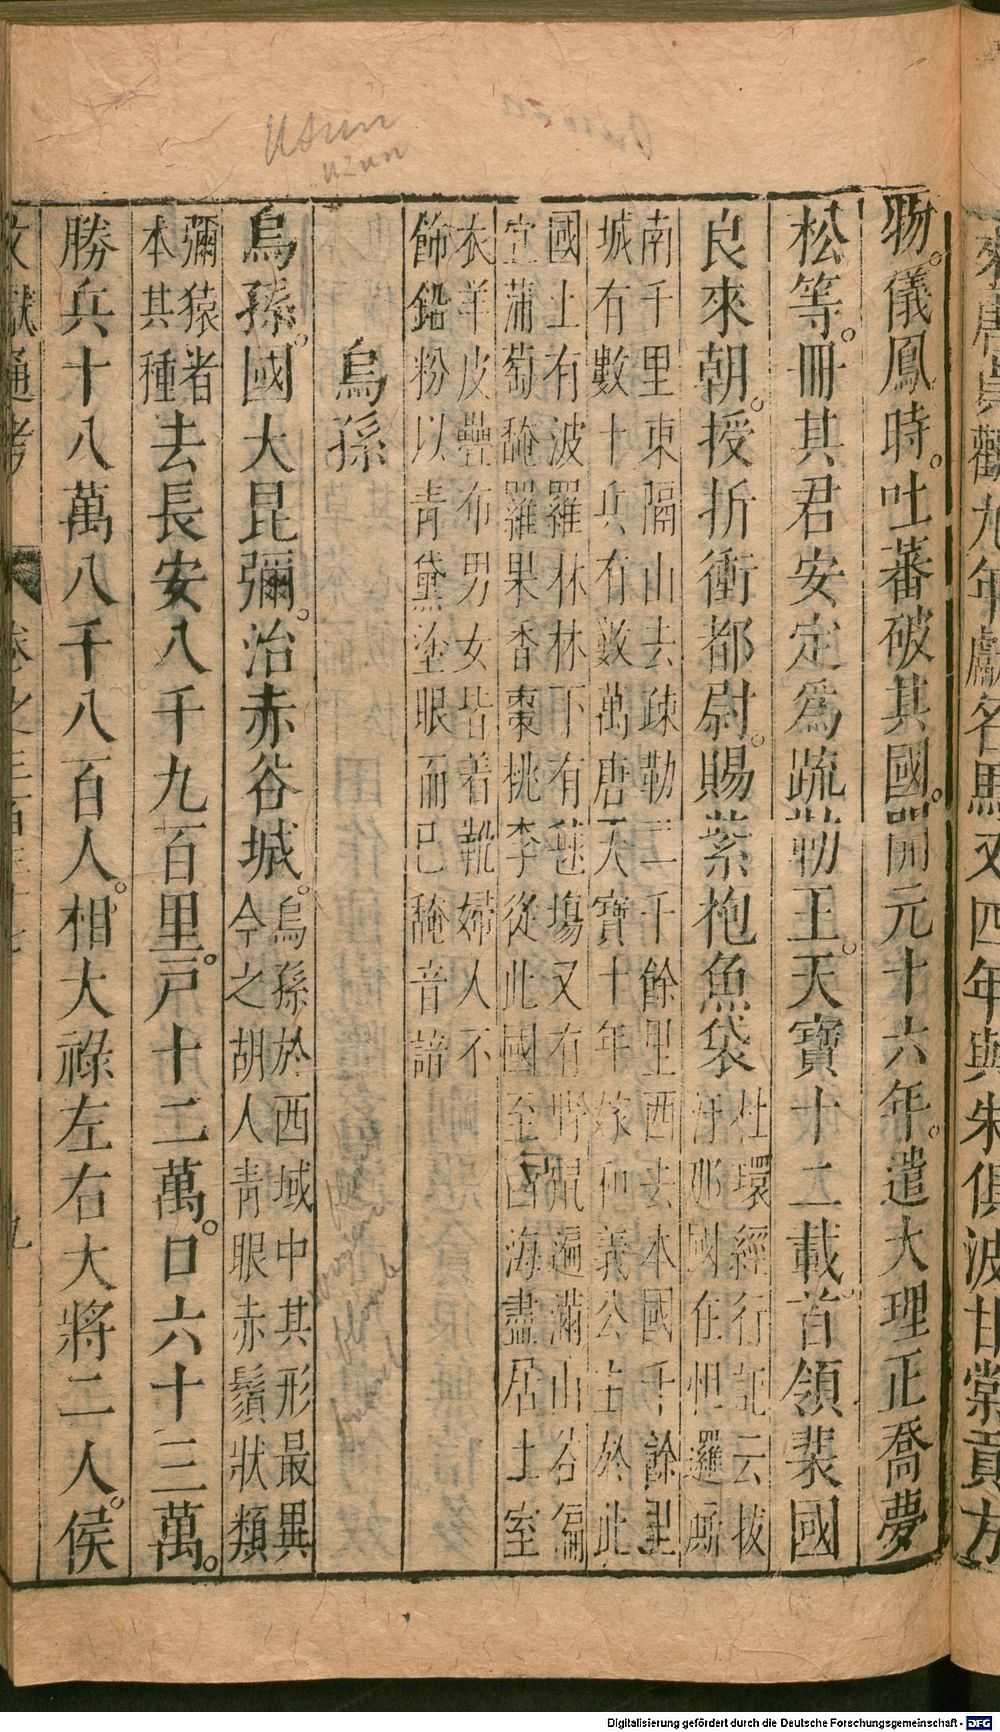 Usun
uzun
物。儀鳳時。吐蕃破其國。開元十六年。遣大理正喬夢
松等。冊其君安定爲疏勒王。天寶十二載。首領裴國
良來朝。授折衝都尉。賜紫袍魚袋
杜環經行記云拔
汗那國在怛邏斯
南千里東隔山去疎勒二千餘里西去本國千餘里
城有數十兵有数萬唐天寶十年嫁和義公主於此
國土有波羅林林下有毬塲又有野鼠遍滿山谷偏
宜蒲萄醃羅果香棗桃李從此國至西海盡居土室
衣羊皮疊布男女皆着靴婦人不
飾鉛粉以青黛塗眼而已醃音諳
烏孫
烏孫。國大昆彌。治赤谷城。
烏孫於西域中其形最異
今之胡人青眼赤鬚狀類
彌猿者
本其種
去長安八千九百里。戸十二萬。口六十三萬。
勝兵十八萬八千八百人。相大祿左右大將二人。侯
文獻通考
卷之三百三十七
九
來唐貞觀九年獻名馬又四年與朱俱波甘棠貢方
Digitalisierung gefördert durch die Deutsche Forschungsgemeinschaft - DFG